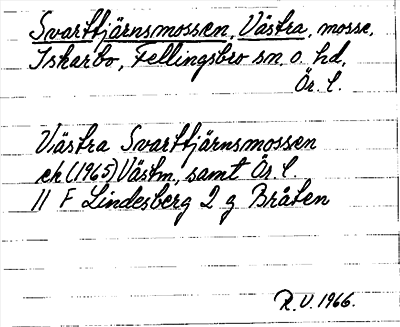 Svarttjärnsmossen, Västra, mosse,
Iskarbo, Fellingsbro sn. o. hd,
Ör. l.
Västra Svarttjärnsmossen
ek (1965) Västm, samt Ör l.
11 F Lindesberg 2 g Bråten
R.V. 1966.